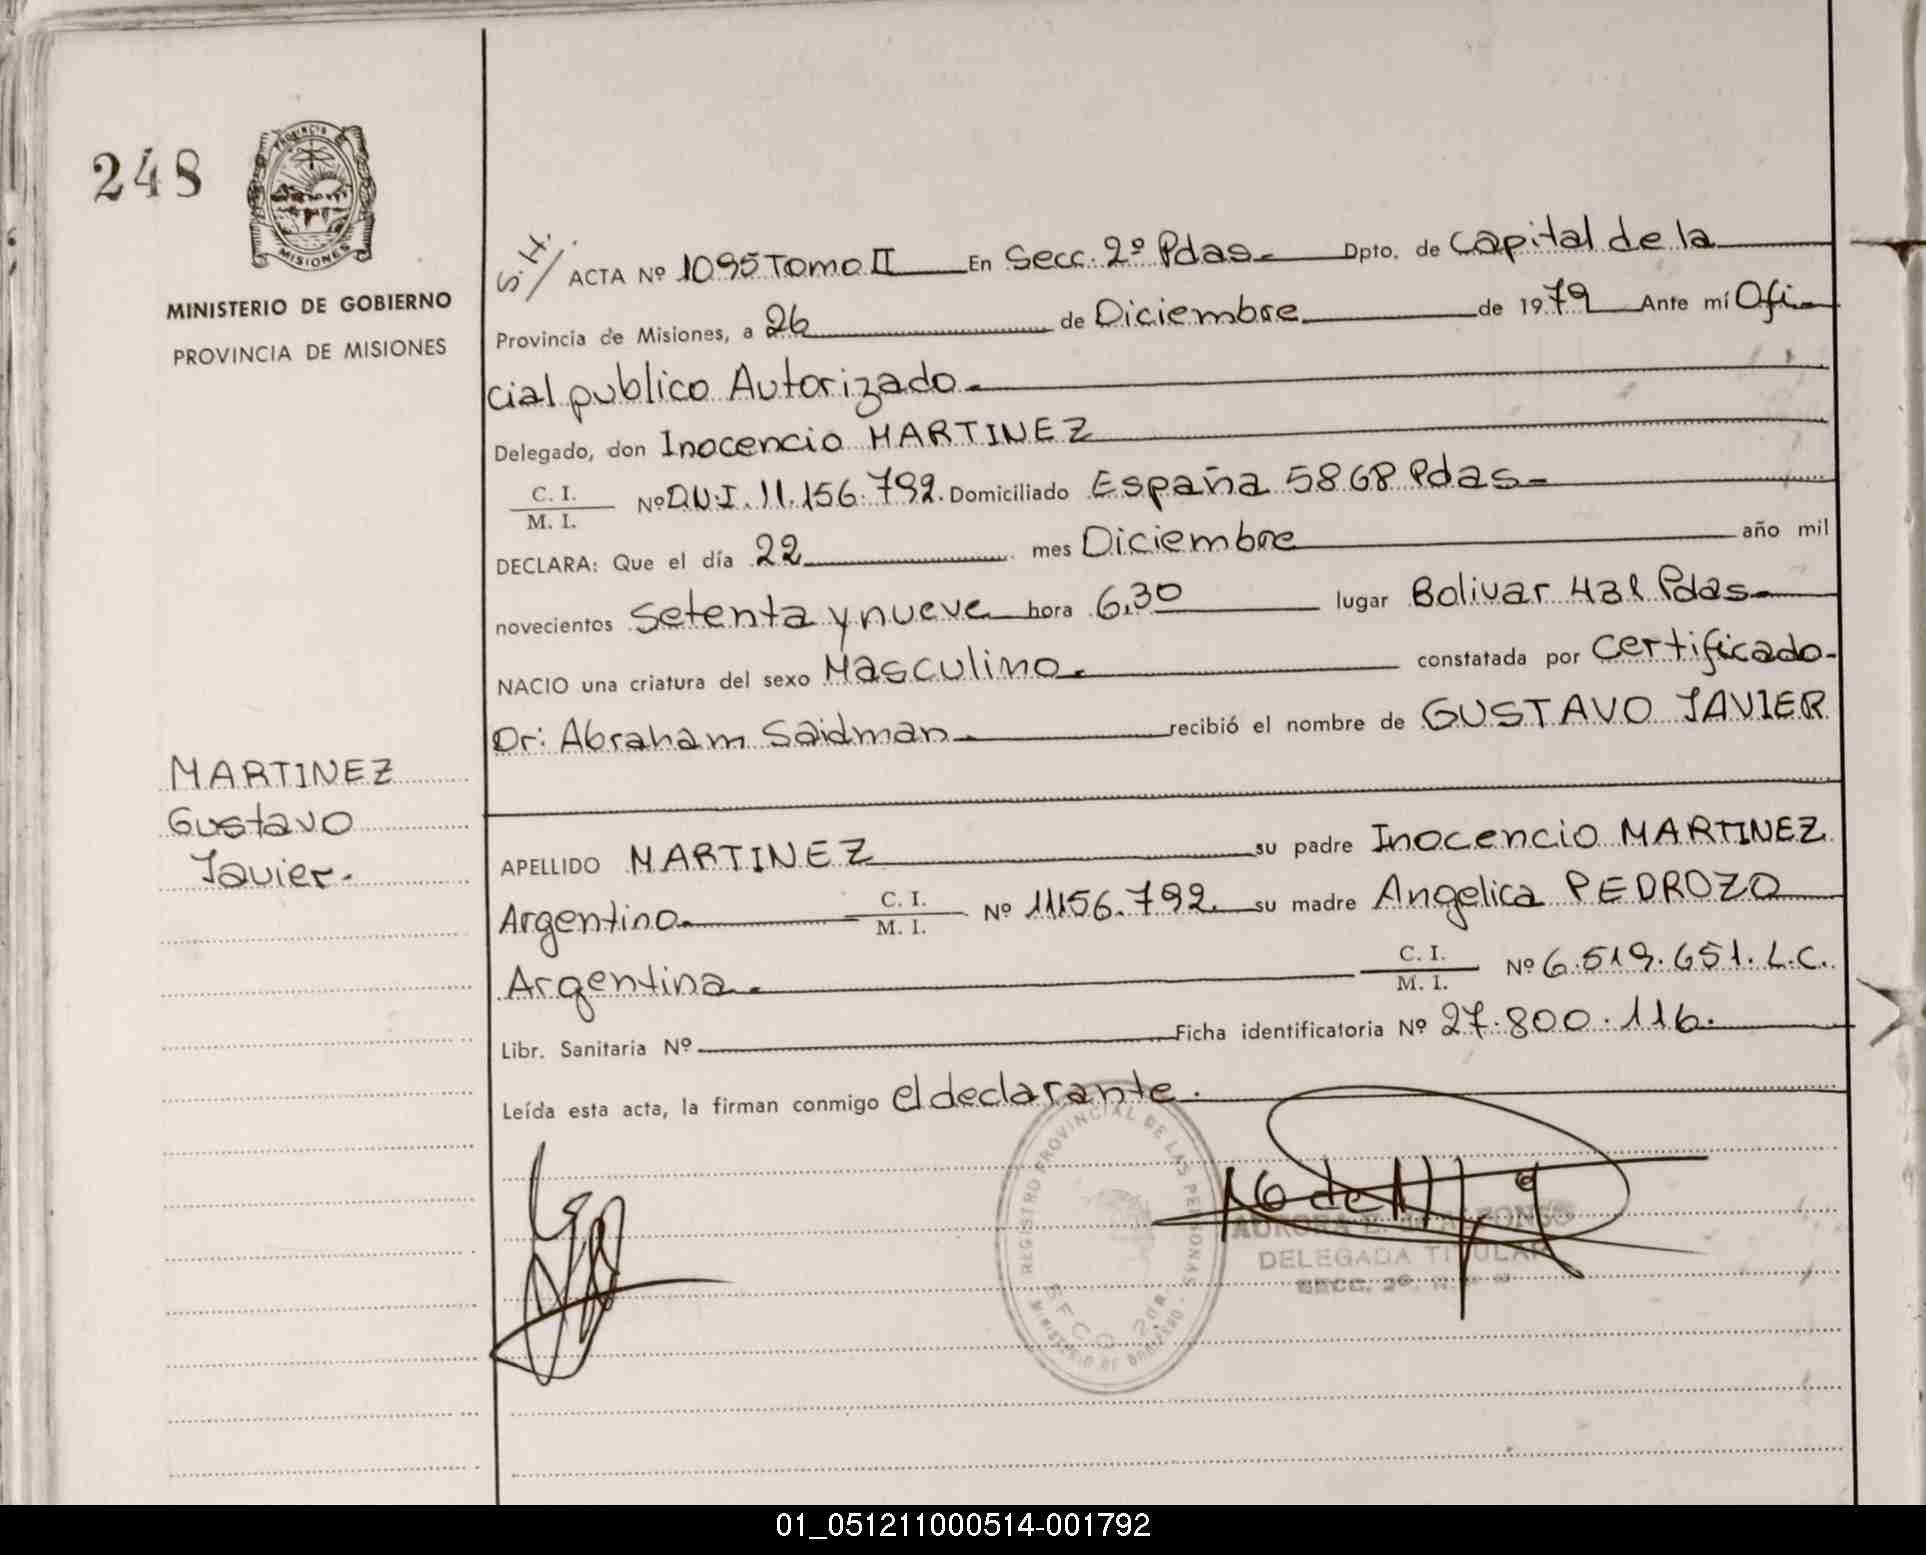 248
PROVINCIA
MISIONES
MINISTERIO DE GOBIERNO
PROVINCIA DE MISIONES
MARTINEZ
Gustavo
Javier.
S.H./
ACTA Nº 1095 Tomo II En Secc. 2º Pdas. Dpto. de Capital de la
Provincia de Misiones, a 26 de Diciembre de 1979 Ante mí Ofi
cial publico Autorizado.
Delegado, don Inocencio MARTINEZ
C. I.
M. I.
Nº D.N.I. 11.156.792. Domiciliado España 5868 Pdas.
DECLARA: Que el día 22 mes Diciembre año mil
novecientos Setenta y nueve hora 6,30 lugar Bolivar 432 Pdas.
NACIO una criatura del sexo Masculino. constatada por Certificado.
Dr: Abraham Saidman. recibió el nombre de GUSTAVO JAVIER
APELLIDO MARTINEZ su padre Inocencio MARTINEZ
Argentino. C. I. M. I. Nº 11156.792. su madre Angelica PEDROZO
Argentina. C. I. M. I. Nº 6.519.651. L.C.
Libr. Sanitaria Nº Ficha identificatoria Nº 27.800.116.
Leída esta acta, la firman conmigo el declarante.
REGISTRO PROVINCIAL DE LAS PERSONAS
MINISTERIO DE GOBIERNO
AURORA
DELEGADA TITULAR
SECC. 2º
01_051211000514-001792